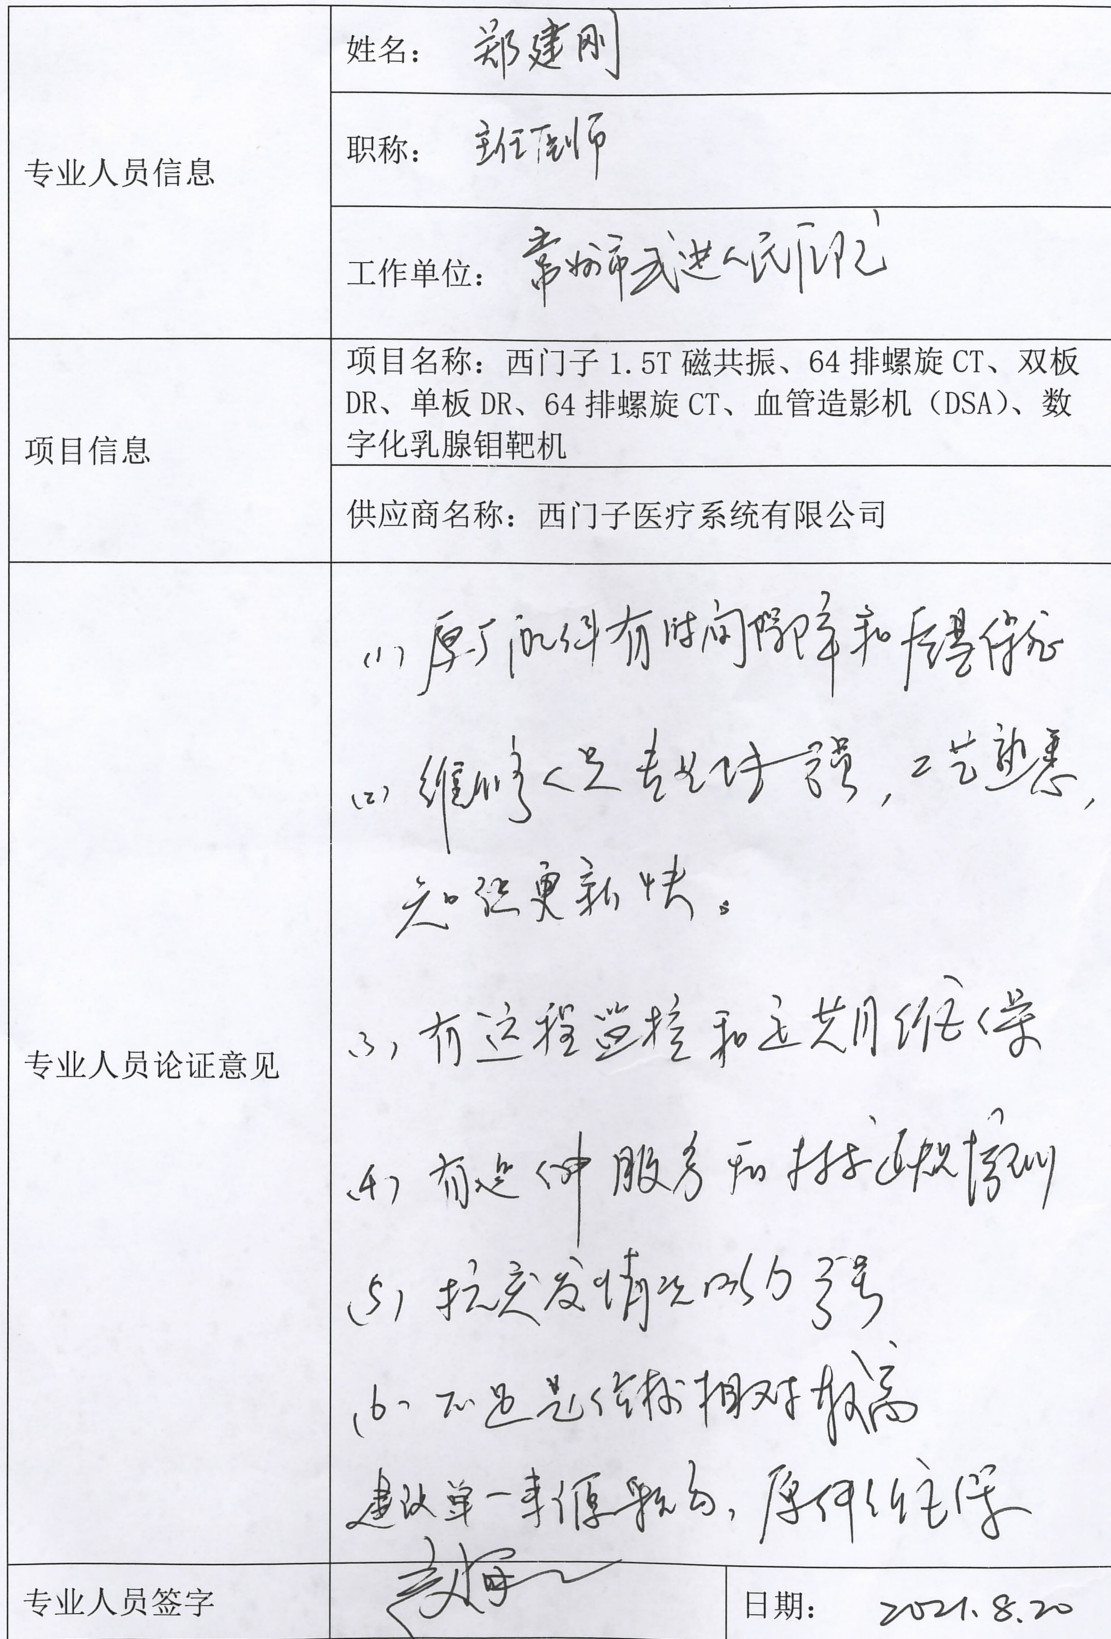 专业人员信息
姓名：郑建刚
职称：主任医师
工作单位：常州市武进人民医院
项目信息
项目名称：西门子1.5T磁共振、64排螺旋CT、双板
DR、单板DR、64排螺旋CT、血管造影机（DSA）、数
字化乳腺钼靶机
供应商名称：西门子医疗系统有限公司
专业人员论证意见
(1) 原厂配件有时间保障和质量保证
(2) 维修人员专业性强，工艺熟悉，
知识更新快。
(3) 有远程监控和定期维保
(4) 有延伸服务和技术培训
(5) 抗突发情况能力强
(6) 不足是价格相对较高
建议单一来源采购，原件维保
专业人员签字
日期：2021.8.20